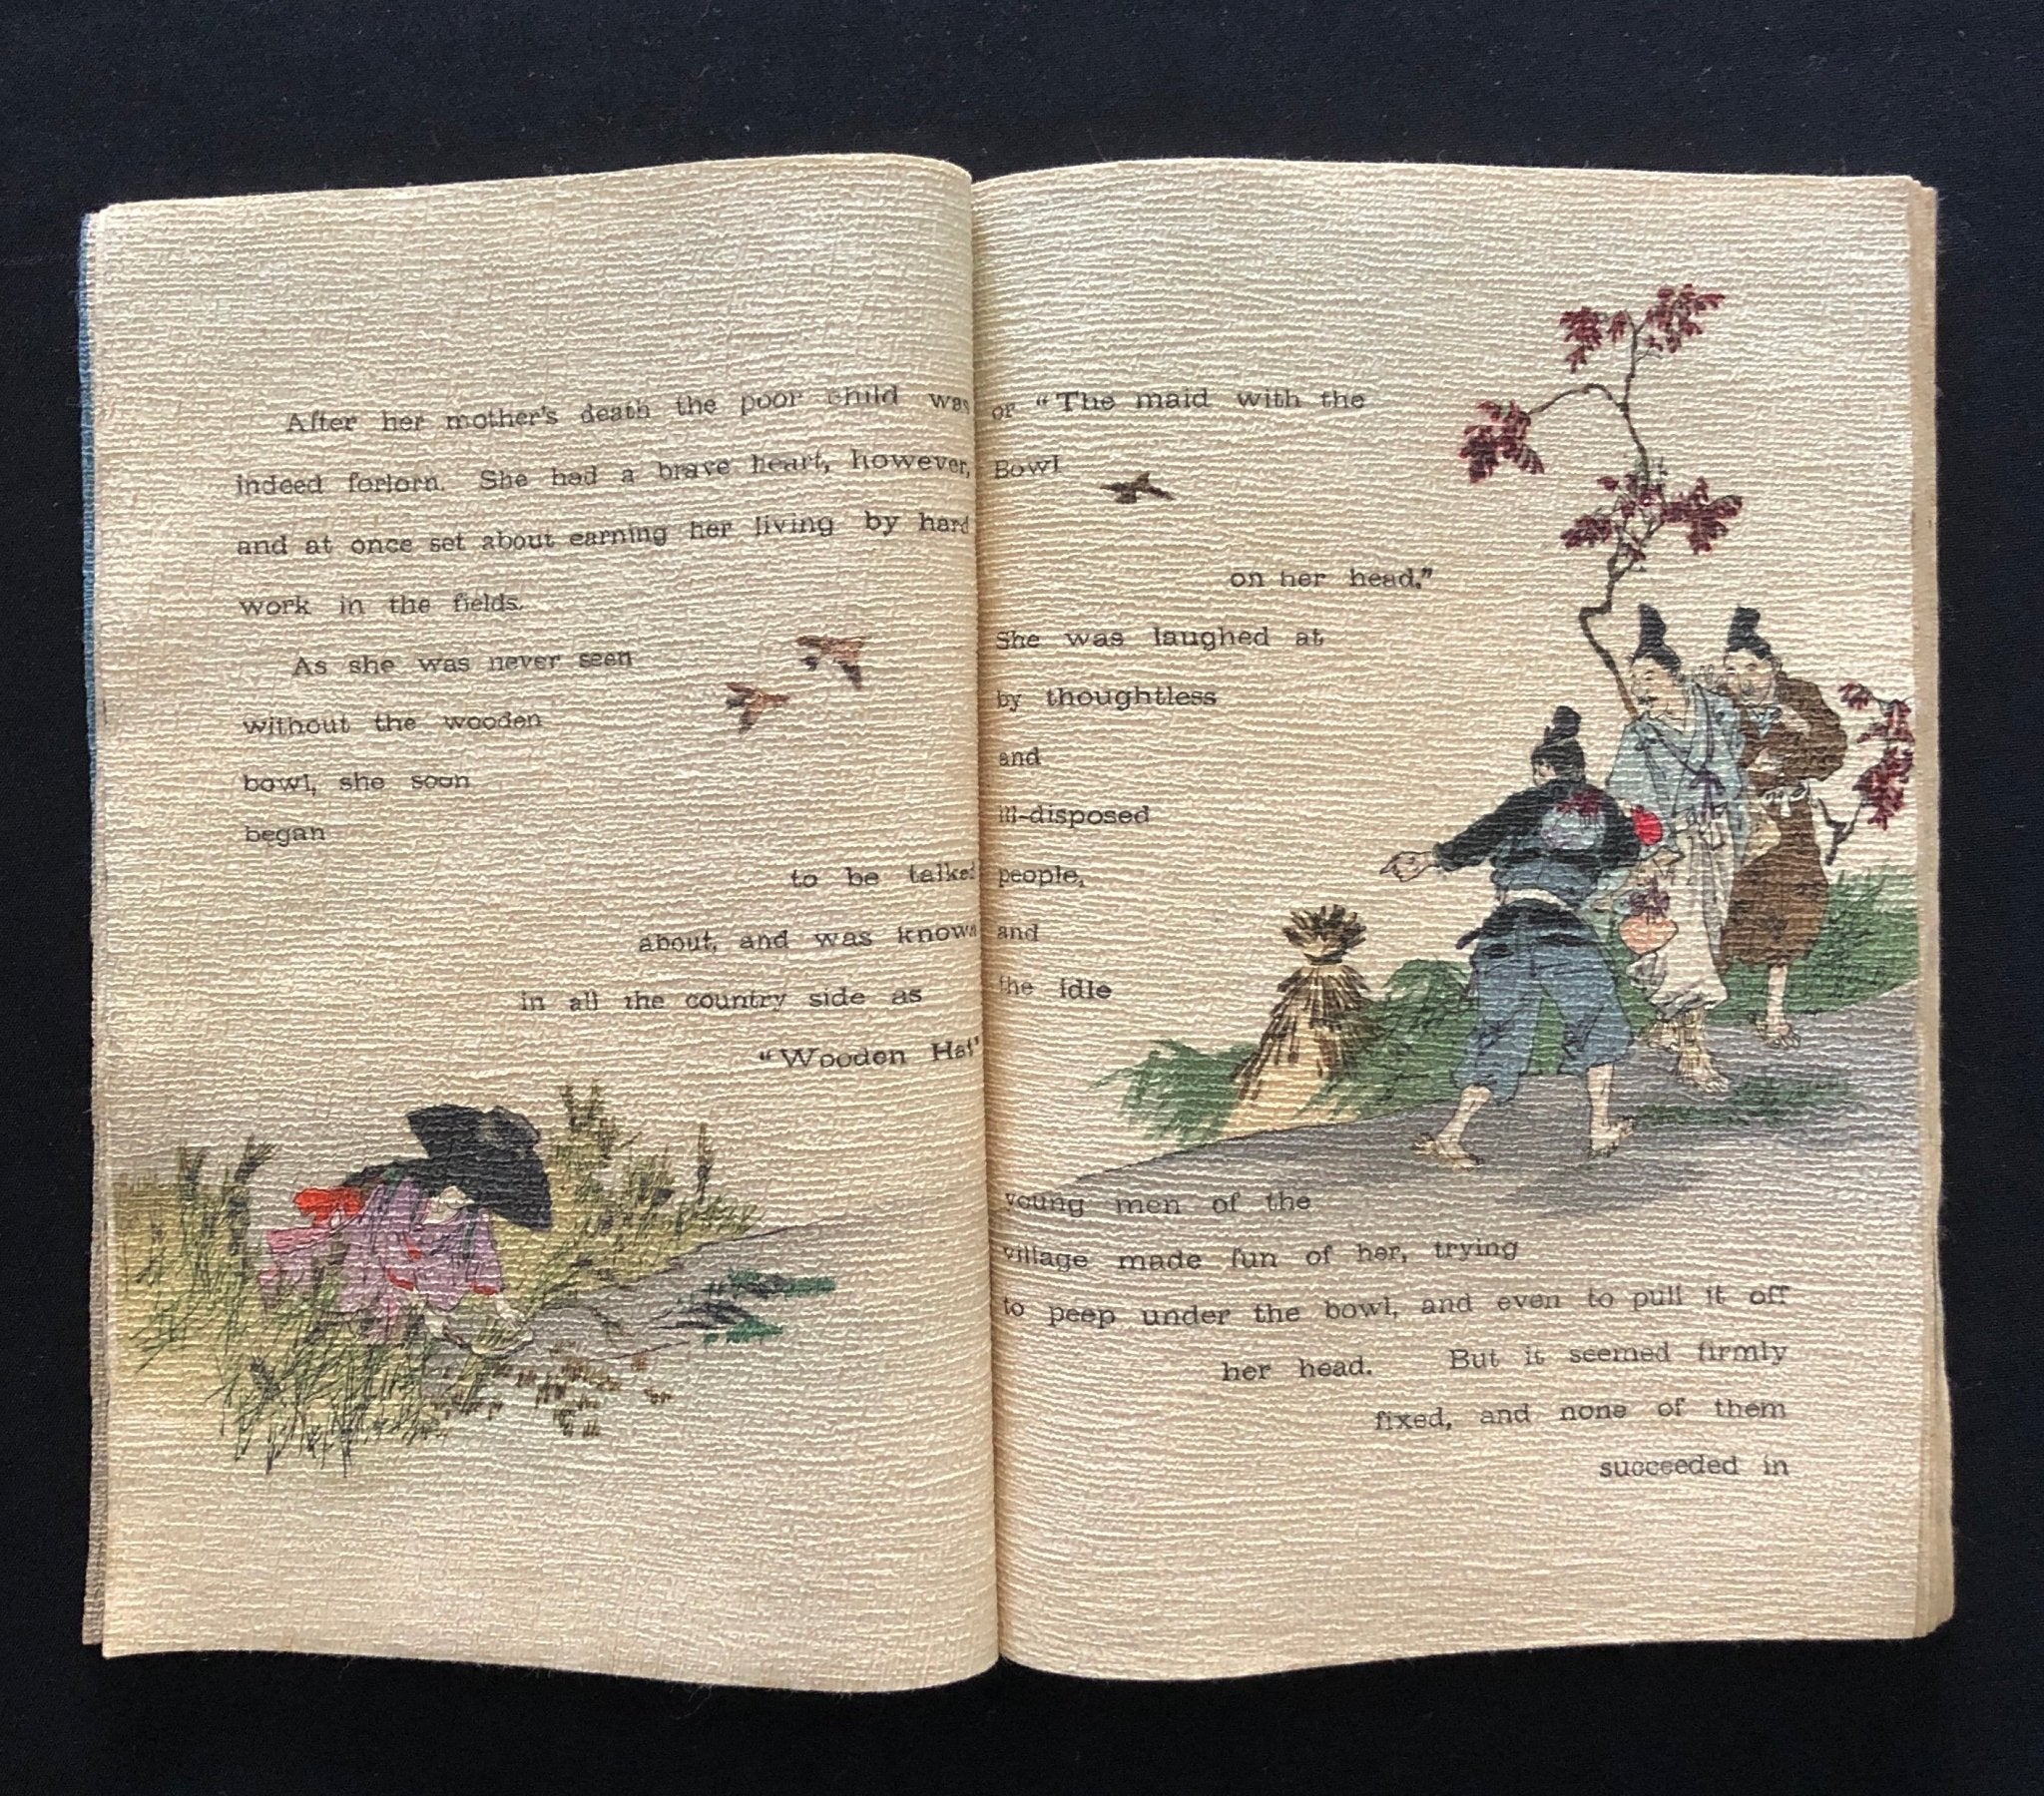 After her mother's death the poor child was
indeed forlorn. She had a brave heart, however,
and at once set about earning her living by hard
work in the fields.
As she was never seen
without the wooden
bowl, she soon
began
to be talked
about, and was known
in all the country side as
"Wooden Hat"
or "The maid with the
Bowl
on her head."
She was laughed at
by thoughtless
and
ill-disposed
people,
and
the idle
young men of the
village made fun of her, trying
to peep under the bowl, and even to pull it off
her head. But it seemed firmly
fixed, and none of them
succeeded in